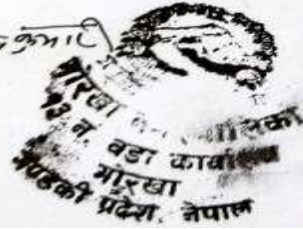 कुमारी
गोरखा
१३ नं. वडा कार्यालय
गोरखा
गण्डकी प्रदेश, नेपाल